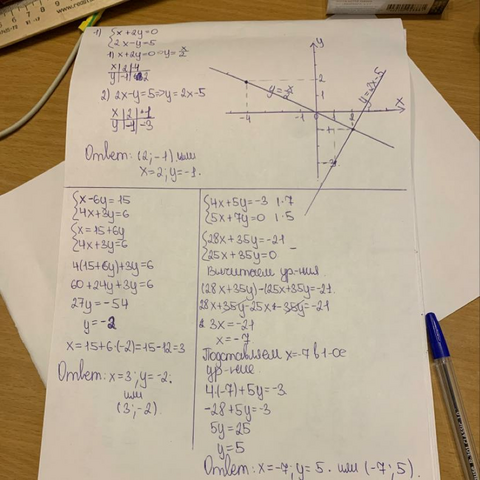 1) { x+2y=0
{ 2x-y=5
1) x+2y=0 => y=
x | 2 |
y | -1 |
2) 2x-y=5 => y=2x-5
x | 2 | 1
y | -1 | -3
Ответ: (2; -1) или
x=2; y=-1.
y
2
1
-4
-1
0
2
x
-1
-3
y=2x-5
{ x-6y=15
{ 4x+3y=6
{ x=15+6y
{ 4x+3y=6
4(15+6y)+3y=6
60+24y+3y=6
27y=-54
y=-2
x=15+6·(-2)=15-12=3
Ответ: x=3; y=-2.
или
(3; -2).
{ 4x+5y=-3 |·7
{ 5x+7y=0 |·5
{ 28x+35y=-21
{ 25x+35y=0
Вычитаем ур-ния
(28x+35y)-(25x+35y)=-21
28x+35y-25x-35y=-21
3x=-21
x=-7
Подставляем x=-7 в 1-ое
ур-ние.
4·(-7)+5y=-3
-28+5y=-3
5y=25
y=5
Ответ: x=-7; y=5. или (-7; 5).